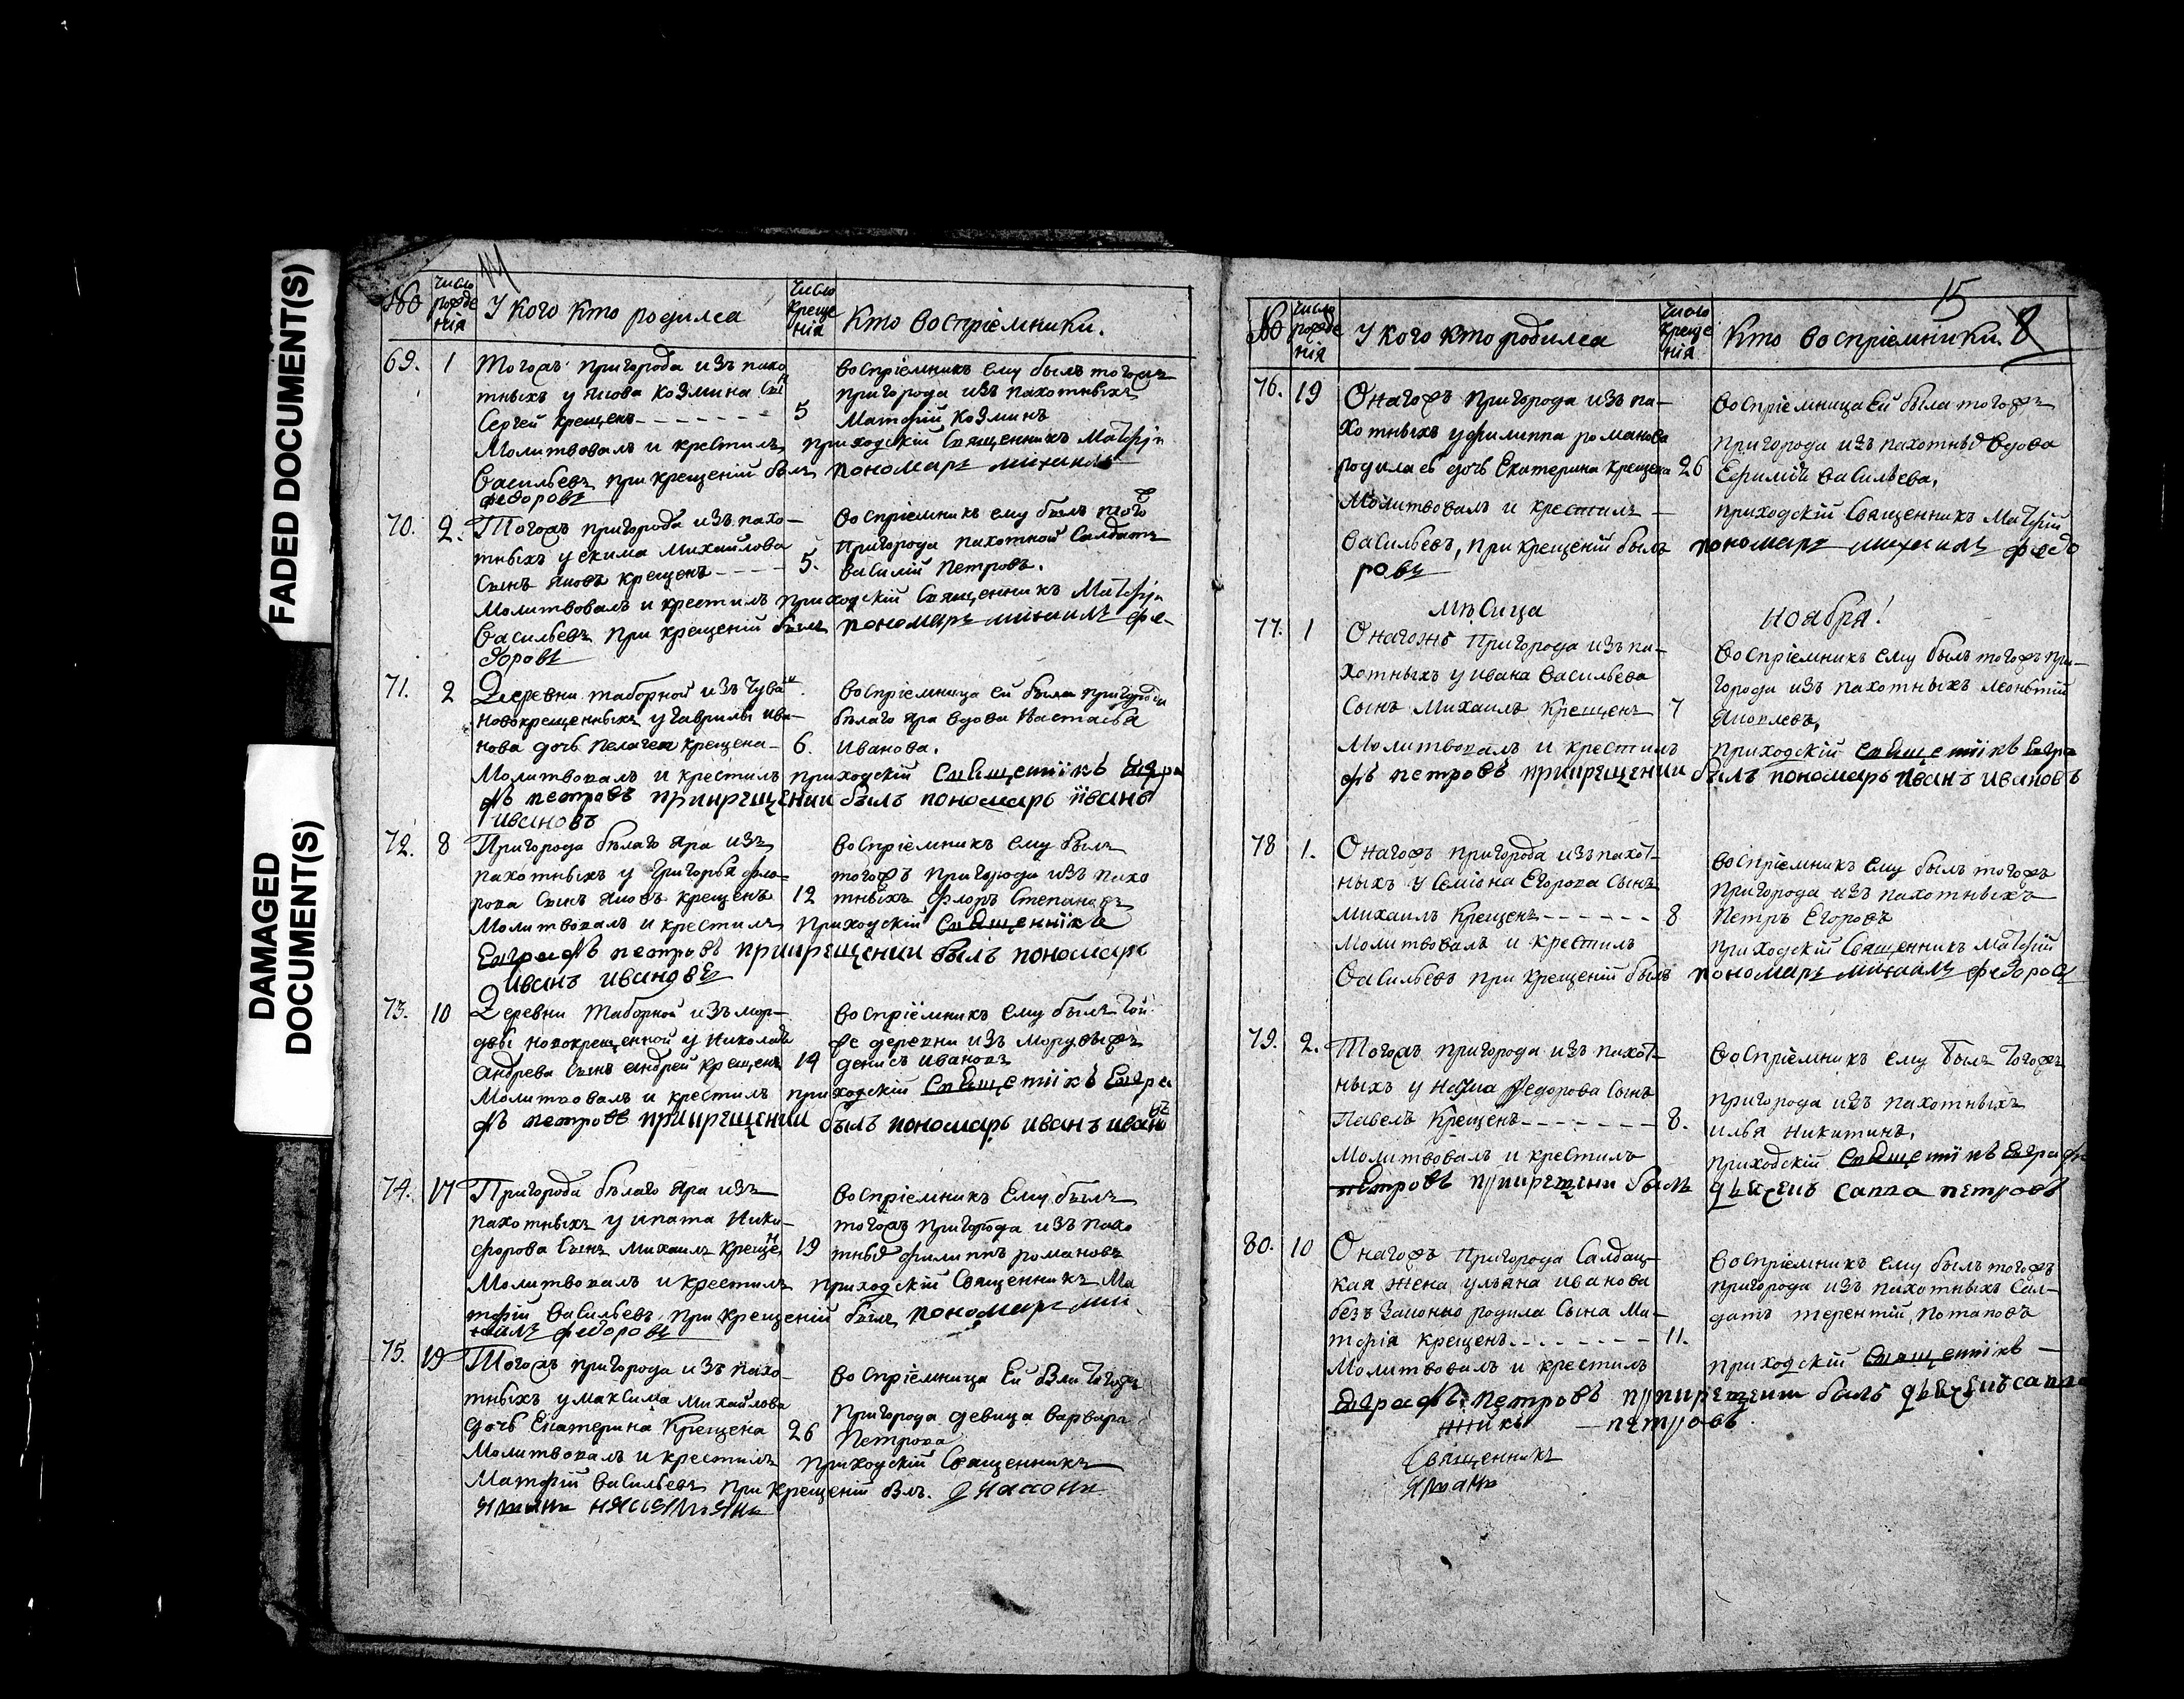 FADED DOCUMENT(S)
DAMAGED
DOCUMENT(S)
№
Число
рожде
нія
У кого кто родился
Число
креще
нія
Кто воспріемники.
69. 1 Тогожъ пригорода изъ пахо
тныхъ у Якова Козмина сынъ
Сергей крещенъ - - - - - 5
воспріемникъ ему былъ тогожъ
пригорода изъ пахотныхъ
Матфій Козминъ
Молитвовалъ и крестилъ приходскій Священникъ Матфій
Васильевъ при крещеній былъ пономарь михаилъ
федоровъ
70. 2. Тогожъ пригорода изъ пахо-
тныхъ у екима Михайлова
Сынъ Яковъ крещенъ - - - - 5.
воспріемникъ ему былъ тогож
пригорода пахотной Салдатъ
василій Петровъ.
Молитвовалъ и крестилъ приходскій Священникъ Матфій
Васильевъ при крещеній былъ пономарь михаилъ фе-
доровъ
71. 2 Деревни таборной изъ чуваш
новокрещенныхъ у Гаврилы ива-
нова дочь Пелагея крещена- 6.
воспріемница ей была пригорода
бѣлаго Яра вдова Настасья
Иванова.
Молитвовалъ и крестилъ приходскій Священникъ Евгра
фъ петровъ прикрещении былъ пономарь Иванъ
ивановъ
72. 8 Пригорода бѣлаго Яра изъ
пахотныхъ у Григорья фло-
рова Сынъ Яковъ крещенъ 12
воспріемникъ ему былъ
тогожъ пригорода изъ пахо
тныхъ Флоръ Степановъ
Молитвовалъ и крестилъ приходскій Священникъ
Евграфъ петровъ прикрещении былъ пономарь
Иванъ ивановъ
73. 10 Деревни Таборной изъ мор-
двы новокрещенной у Николая
Андрева Сынъ андрей крещенъ 14
воспріемникъ ему былъ той
же деревни изъ Мордвы жъ
денисъ ивановъ
Молитвовалъ и крестилъ приходскій Священникъ Евгра
фъ петровъ прикрещении былъ пономарь иванъ ивановъ
74. 17 Пригорода бѣлаго Яра изъ
пахотныхъ у ипата Ники-
форова Сынъ Михаилъ крещенъ 19
воспріемникъ Ему былъ
тогожъ пригорода изъ пахо
тных филиппъ романовъ
Молитвовалъ и крестилъ приходскій Священникъ Ма
тфій Васильевъ при крещеній былъ пономарь ми
хаилъ федоровъ
75. 19 Тогожъ пригорода изъ пахо-
тныхъ у максима Михайлова
дочь Екатерина крещена 26
воспріемница Ей была тогожъ
Пригорода девица варвара
Петрова
Молитвовалъ и крестилъ приходскій Священникъ
Матфій Васильевъ при крещеній былъ.
15
8
№
Число
рожде
нія
У кого кто родился
Число
креще
нія
Кто воспріемники.
76. 19 Онагожъ пригорода изъ па-
хотныхъ у филиппа романова
родилась дочь Екатерина крещена 26
воспріемница Ей была тогожъ
пригорода изъ пахотных вдова
Ефимія васильева.
Молитвовалъ и крестилъ - приходскій Священникъ Матфій
Васильевъ, при крещеній былъ пономарь михаилъ федо
ровъ
мѣсяца Ноября!
77. 1 Онагожъ пригорода изъ па-
хотныхъ у ивана васильева
Сынъ Михаилъ крещенъ 7
Воспріемникъ ему былъ тогожъ при-
города изъ пахотныхъ леонътій
Яковлевъ.
Молитвовалъ и крестилъ приходскій Священникъ Евгра
фъ петровъ прикрещении былъ пономарь Иванъ ивановъ
78 1. Онагожъ пригорода изъ пахот-
ныхъ у Семіона Егорова Сынъ
михаилъ крещенъ - - - - - - 8
воспріемникъ ему былъ тогожъ
пригорода изъ пахотныхъ
Петръ Егоровъ
Молитвовалъ и крестилъ приходскій Священникъ Матфій
Васильевъ при крещеній былъ пономарь михаилъ федоровъ
79. 2. Тогожъ пригорода изъ пахот-
ныхъ у Федорова Сынъ
Павелъ крещенъ - - - - - - - 8.
воспріемникъ ему былъ тогожъ
пригорода изъ пахотныхъ
илья Никитинъ.
Молитвовалъ и крестилъ приходскій Священникъ Евграфъ
петровъ прикрещени былъ дьячекъ савва петровъ
80. 10 Онагожъ пригорода Салдац-
кая жена ульяна иванова
беззаконно родила Сына Ма-
тфія крещенъ - - - - - - - - 11.
воспріемникъ ему былъ тогожъ
пригорода изъ пахотныхъ Сал-
датъ терентій, Потаповъ
Молитвовалъ и крестилъ приходскій Священникъ -
Евграфъ петровъ прикрещени былъ дьячекъ савва
- петровъ
Священникъ